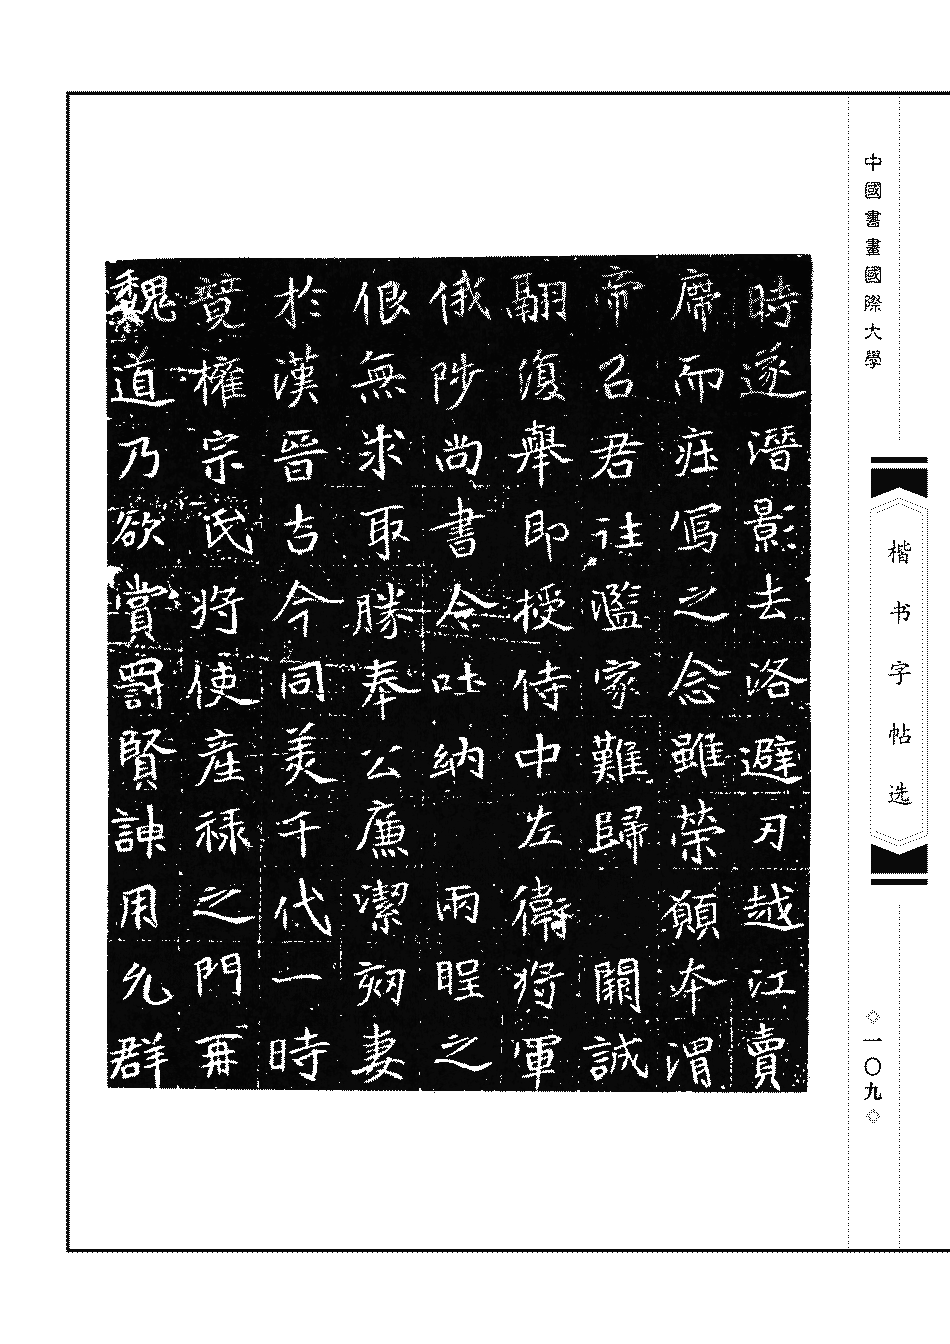 中國書畫國際大學
楷书字帖选
一〇九
時遂潛影去洛避刃越江賣
席而莊寫之念雖榮願本渭
帝召君往濫家難歸闢誠
翮復舉即授侍中左衛将軍
俄陟尚書令吐納兩程之
俍無求取勝奉公廉潔妻
於漢晉古今同美千代一時
竟權宗氏将使產禄之門再
魏道乃欲賞罰賢諌用允群